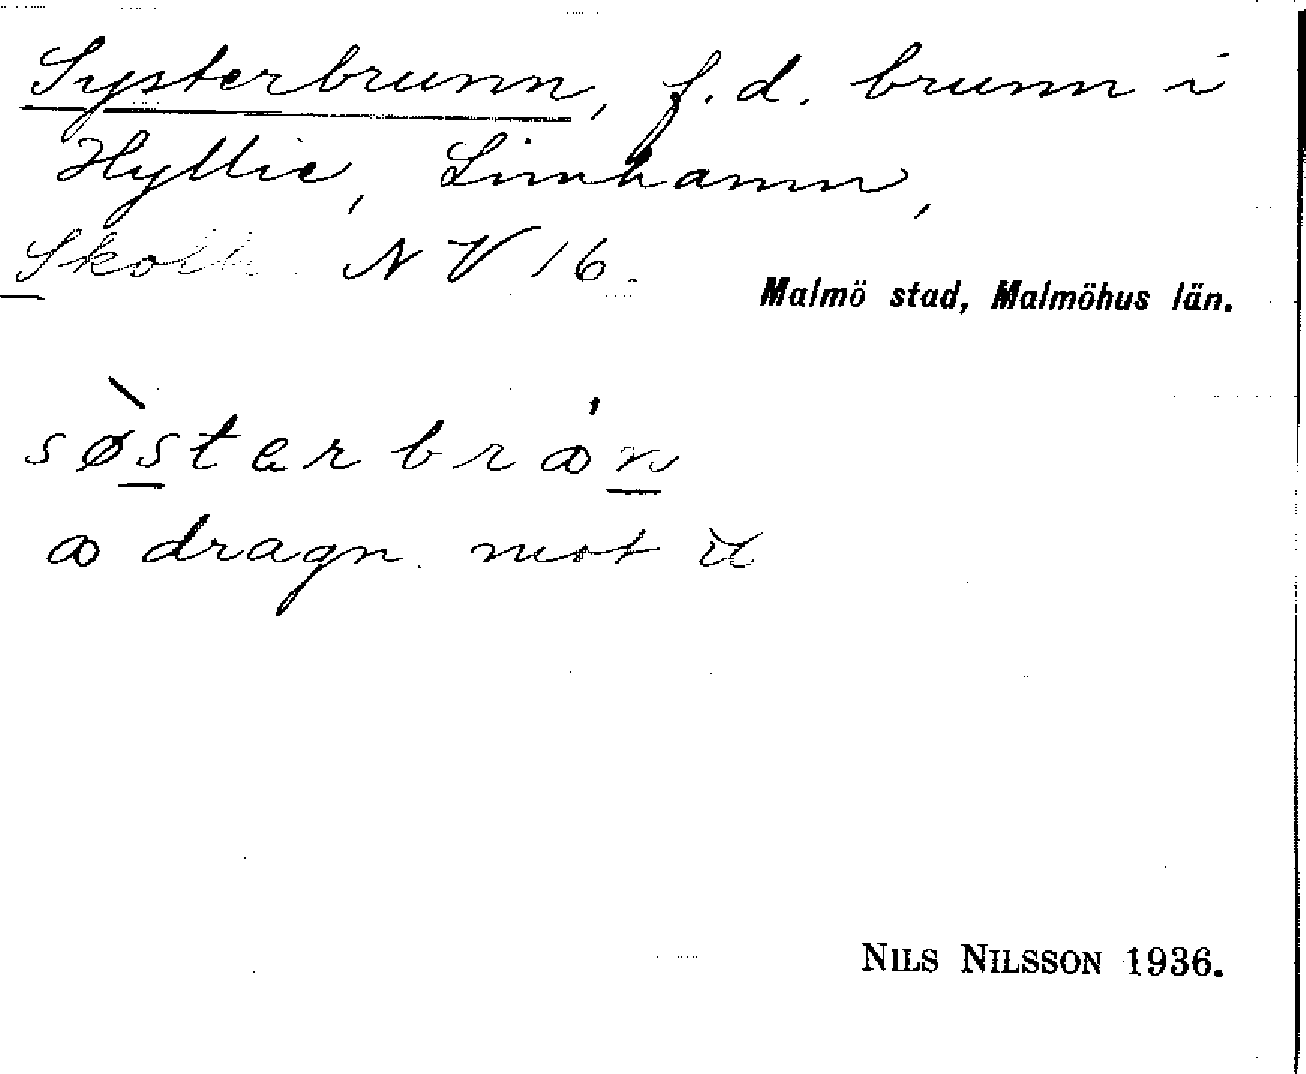 Systerbrunn, f.d. brunn i
Hyllie, Limhamn,
NV 16.
Malmö stad, Malmöhus län.
dragn. mot
NILS NILSSON 1936.